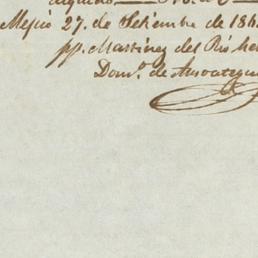 Mejico 27. de Setiembre de 186
pp. Martinez del Rio he
Dom.º de Ansoategui